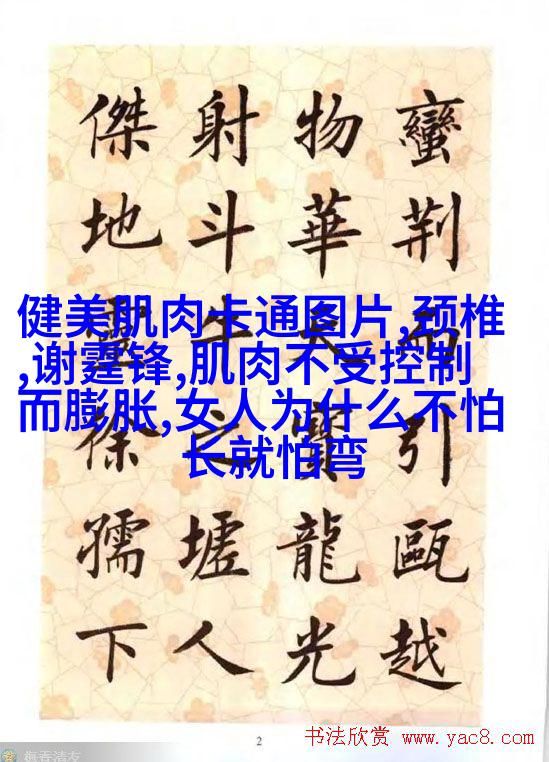 蠻荊而引甌越
物華天寶龍光
射斗牛之墟人
傑地靈徐孺下
健美肌肉卡通图片,颈椎
,谢霆锋,肌肉不受控制
而膨胀,女人为什么不怕
长就怕弯
2
书法欣赏 www.yac8.com